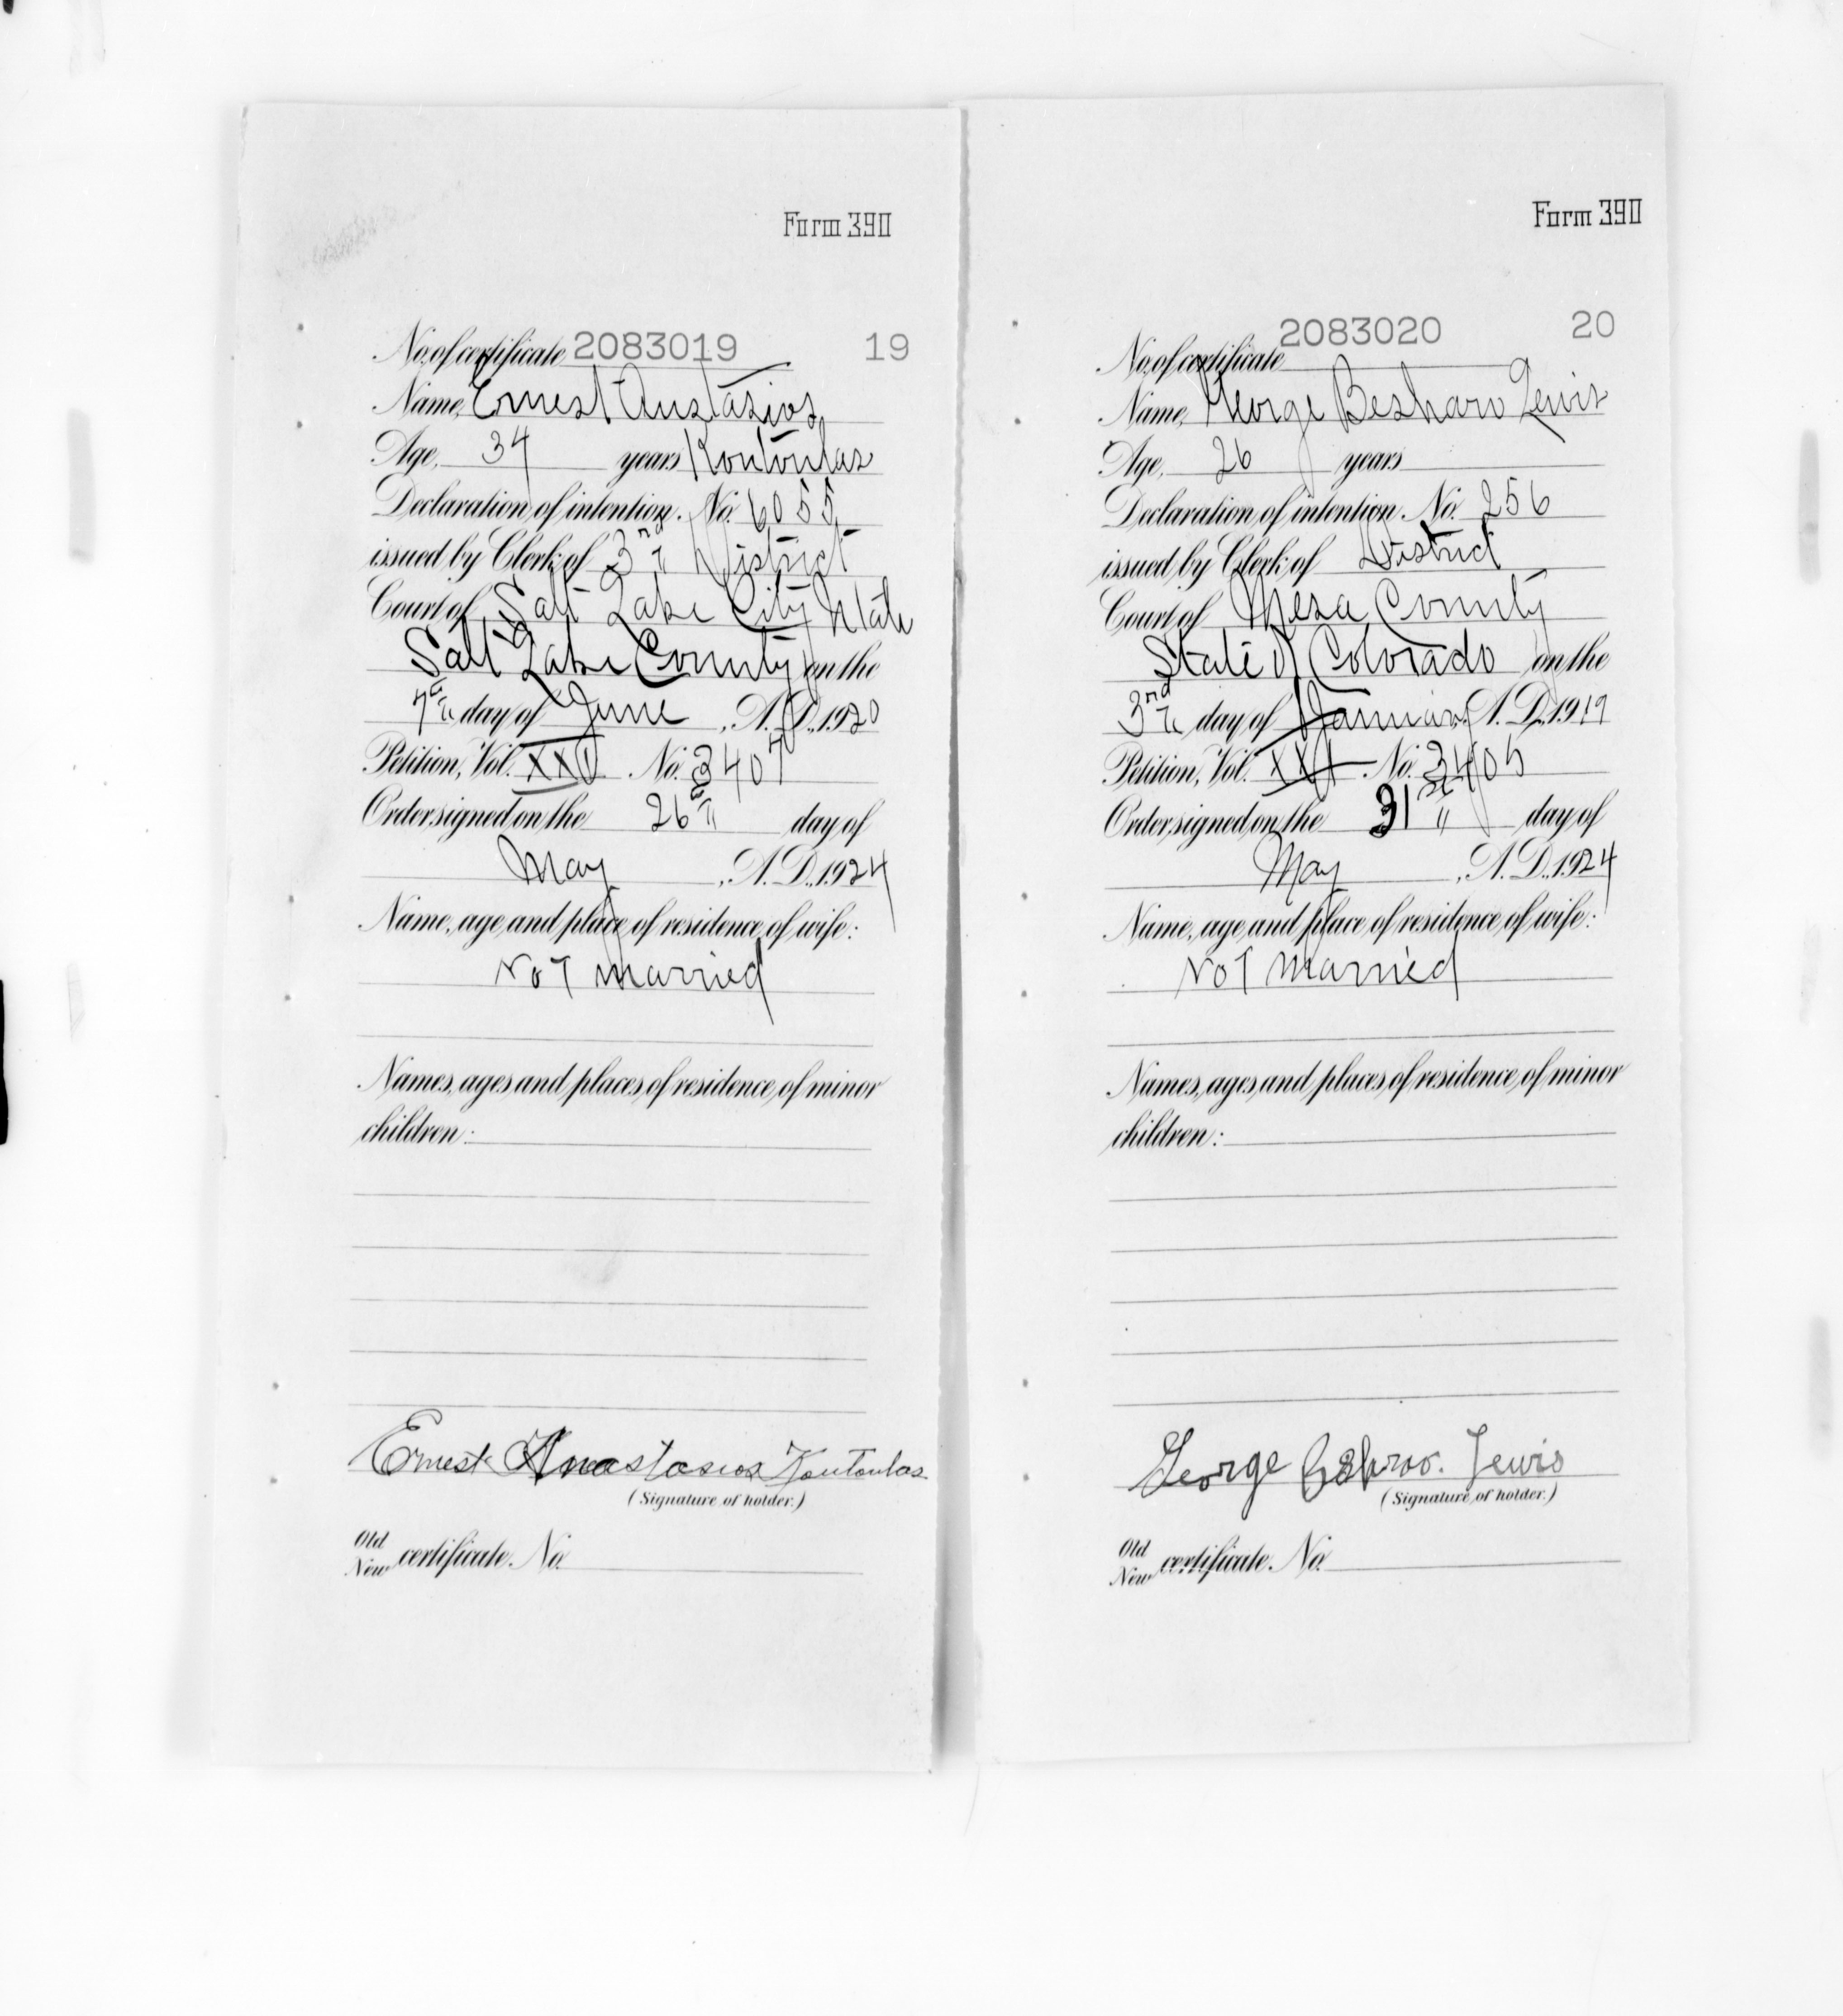 Form 390
No. of certificate 2083019 19
Name, Ernest Anastasios
Age, 34 years Koutoulas
Declaration of intention, No. 6055
issued by Clerk of 3rd District
Court of Salt Lake City Utah
Salt Lake County on the
7th day of June, A. D., 1920
Petition, Vol. No. 3407
Order signed on the 26th day of
May, A. D., 1924
Name, age and place of residence of wife:
Not Married
Names, ages and places of residence of minor
children:
Ernest Anastasios Koutoulas
(Signature of holder.)
Old
New certificate No.
Form 390
No. of certificate 2083020 20
Name, George Besharo Lewis
Age, 26 years
Declaration of intention, No. 256
issued by Clerk of District
Court of Mesa County
State of Colorado on the
3rd day of January, A. D., 1919
Petition, Vol. No. 3405
Order signed on the 31st day of
May, A. D., 1924
Name, age and place of residence of wife:
Not Married
Names, ages and places of residence of minor
children:
George Lewis
(Signature of holder.)
Old
New certificate No.